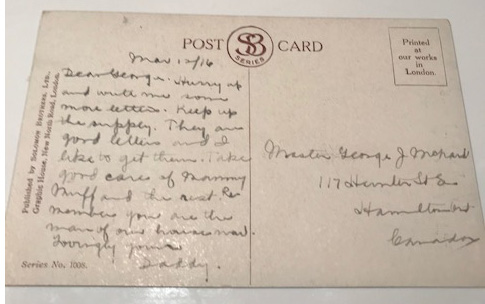 POST
SB
SERIES
CARD
Printed
at our works
in
London.
Published by Solomon Brothers, Ltd.,
Graphic House, New North Road, London
Mar 12/16
Dear George. Hurry up
and write me some
more letters. Keep up
the supply. They are
good letters and I
like to get them. Take
good care of Mommy
Muff and the rest. Re
member you are the
man of our house now.
Lovingly yours
Daddy.
Series No. 1008.
Master George J
117 Hunter St E
Hamilton Ont
Canada